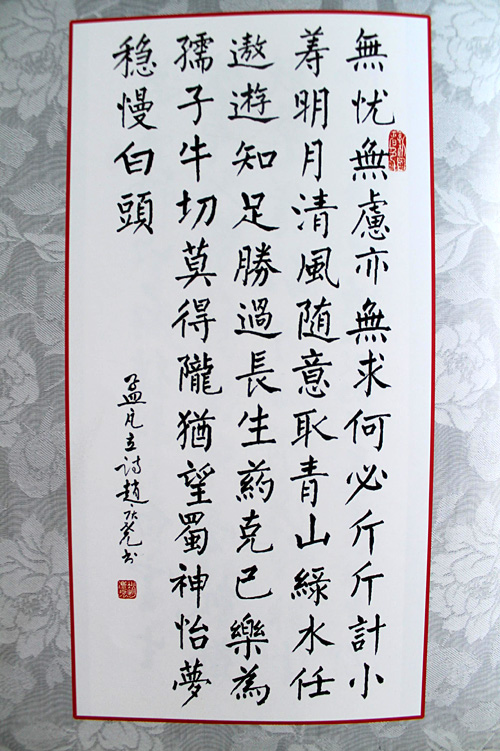 無忧無慮亦無求何必斤斤計小
筹明月清風随意取青山綠水任
遨遊知足勝過長生葯克己樂為
孺子牛切莫得隴猶望蜀神怡夢
稳慢白頭
孟凡立诗趙庆尧书